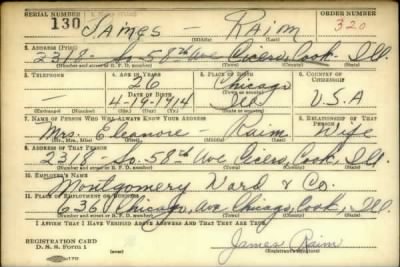 SERIAL NUMBER 130 1. NAME (Print) ORDER NUMBER
JAMES - RAIM 320
(First) (Middle) (Last)
2. ADDRESS (Print)
2318 - So. 58th Ave Cicero, Cook, Ill.
(Number and street or R. F. D. number) (Town) (County) (State)
3. TELEPHONE 4. AGE IN YEARS 5. PLACE OF BIRTH 6. COUNTRY OF CITIZENSHIP
26 Chicago
DATE OF BIRTH (Town or county)
4-19-1914 Ill. U.S.A
(Exchange) (Number) (Mo.) (Day) (Yr.) (State or country)
7. NAME OF PERSON WHO WILL ALWAYS KNOW YOUR ADDRESS 8. RELATIONSHIP OF THAT PERSON
Mrs. Eleanore - Raim Wife
(Mr., Mrs., Miss) (First) (Middle) (Last)
9. ADDRESS OF THAT PERSON
2318 - So. 58th Ave Cicero, Cook, Ill.
(Number and street or R. F. D. number) (Town) (County) (State)
10. EMPLOYER'S NAME
Montgomery Ward & Co.
11. PLACE OF EMPLOYMENT OR BUSINESS
Chicago, Ave Chicago, Cook, Ill.
(Number and street or R. F. D. number) (Town) (County) (State)
I AFFIRM THAT I HAVE VERIFIED ABOVE ANSWERS AND THAT THEY ARE TRUE.
REGISTRATION CARD
D. S. S. Form 1 James Raim